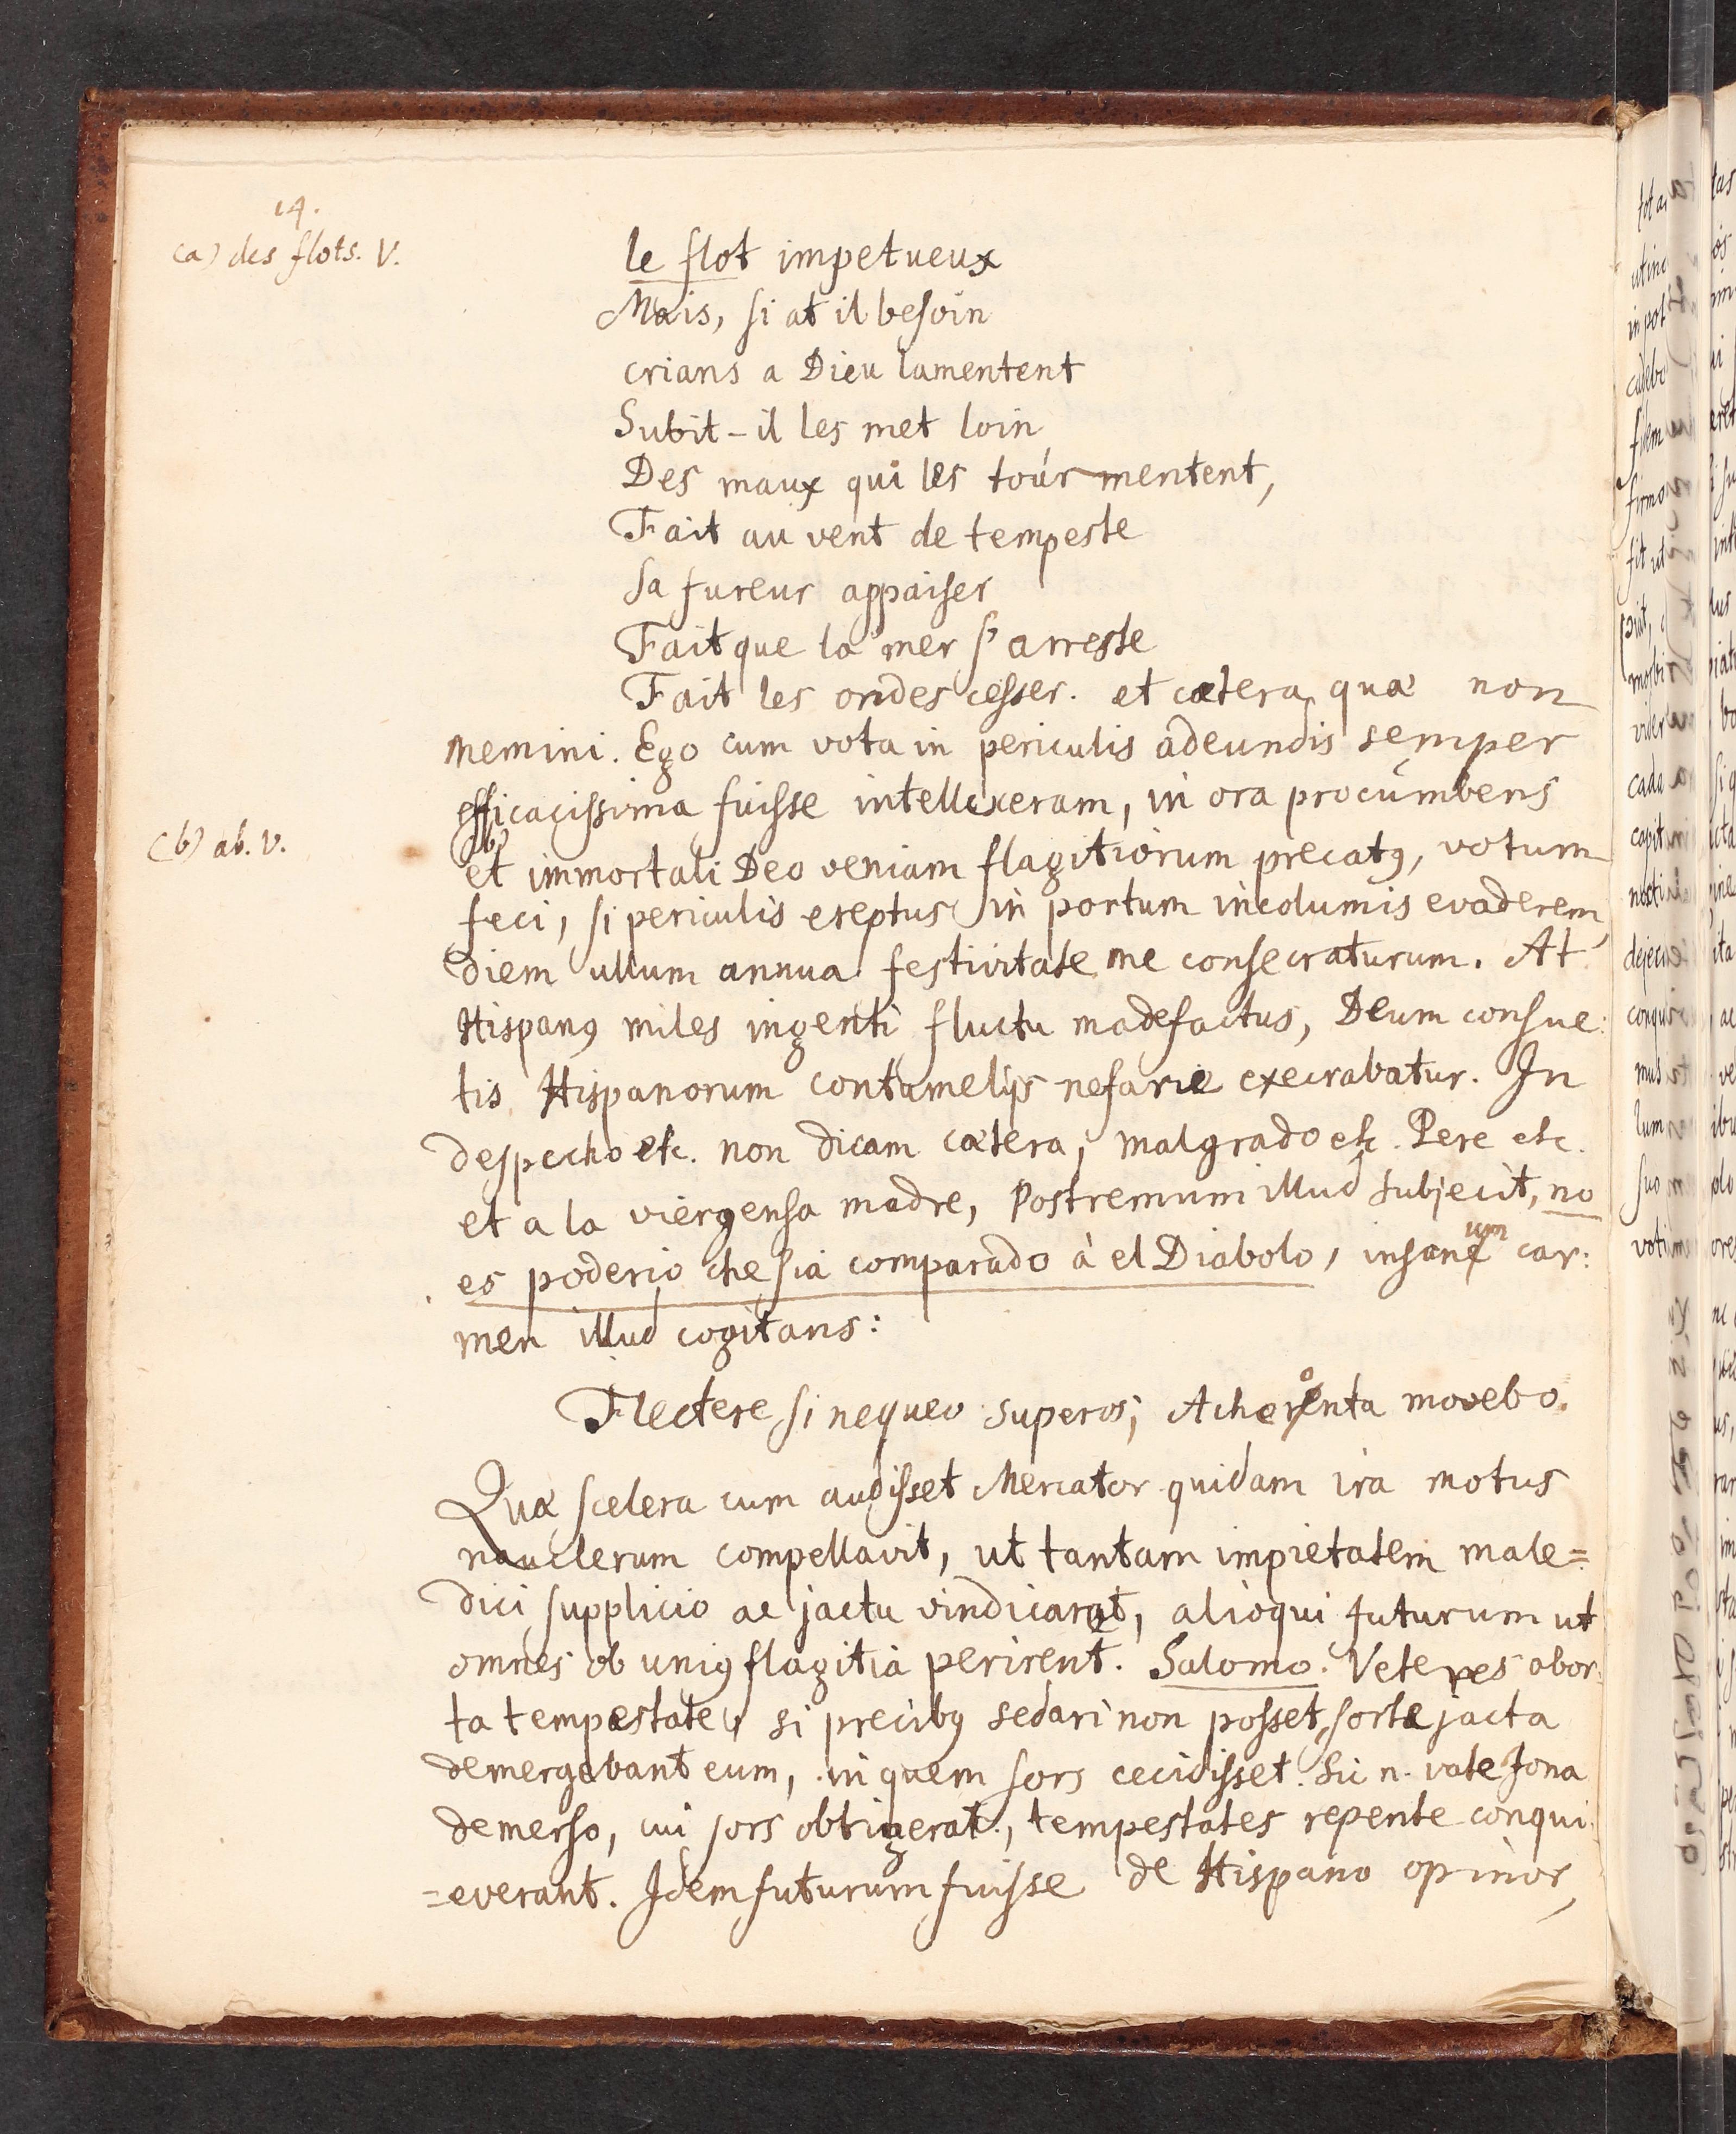 14.
(a) des flots. V.
le flot impetueux
Mais, si at il besoin
crians a Dieu lamentent
Subit-il les met loin
Des maux qui les tourmentent,
Fait au vent de tempeste
Sa fureur appaiser
Fait que la mer s'arreste
Fait les ondes cesser. et cætera quæ non
memini. Ego cum vota in periculis adeundis semper
efficacissima fuisse intellexeram, in ora procumbens
(b) ab. V.
(b)
et immortali Deo veniam flagitiorum precatꝰ, votum
feci, si periculis ereptus in portum incolumis evaderem,
diem ullum annua festivitate me consecraturum. At
Hispanꝰ miles ingenti fluctu madefactus, Deum consue:
tis Hispanorum contumelijs nefarie execrabatur. In
despecho etc. non dicam cætera, malgrado etc. Pere etc.
et a la viergensa madre, Postremum illud subjecit, no
es poderio che sia comparado à el Diabolo, insanum car:
men illud cogitans:
Flectere si nequeo superos, Acheronta movebo.
Quæ scelera cum audisset Mercator quidam ira motus
nauclerum compellavit, ut tantam impietatem male=
dici supplicio ac jactu vindicaret, alioqui futurum ut
omnes ob uniꝰ flagitia perirent. Salomo. Veteres obor:
ta tempestate, si precibꝰ sedari non posset, sorte jacta
demergebant eum, in quem sors cecidisset. Sic n. vate Jona
demerso, cui sors obtigerat, tempestates repente conqui:
=everant. Idem futurum fuisse de Hispano opinor,